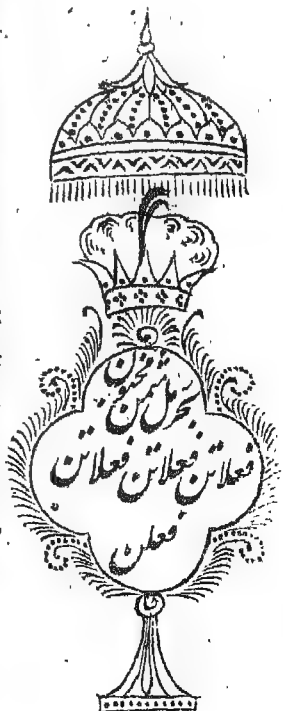 بحر رمل مثمن مخبون
فعلاتن فعلاتن فعلاتن
فعلن